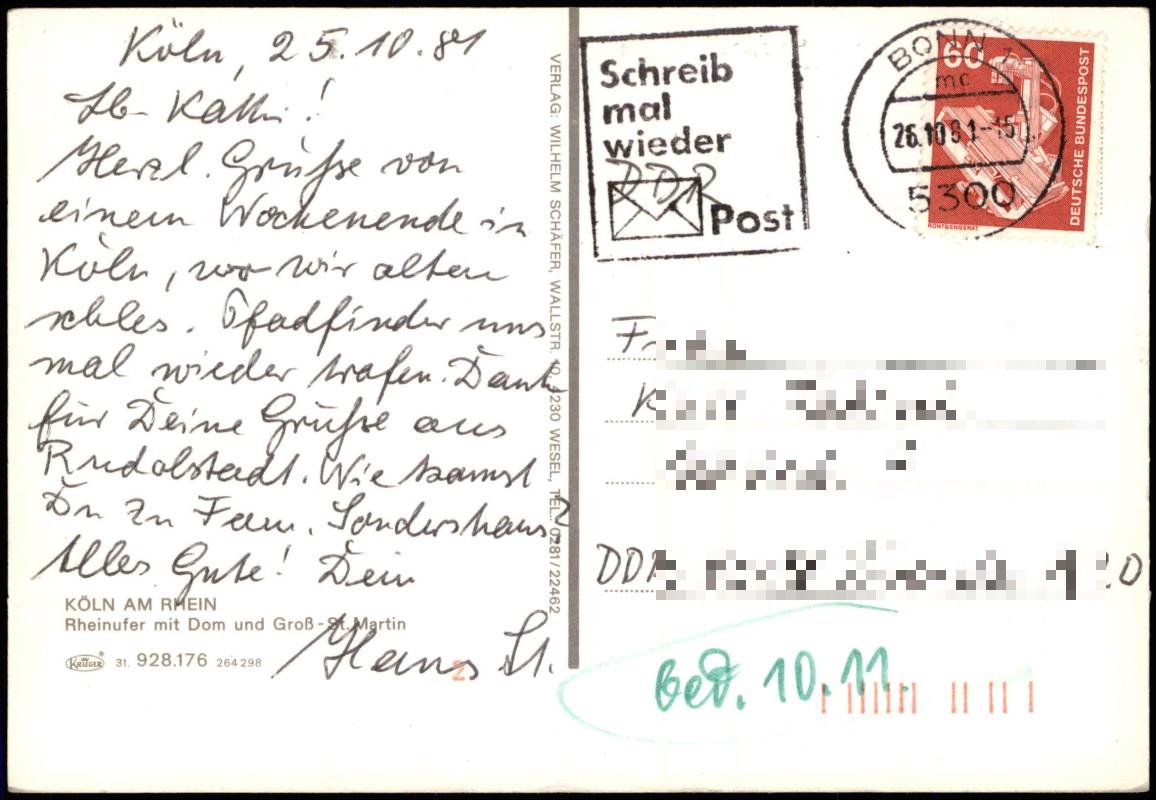 Köln, 25.10.81
Lb. Kathi!
Herzl. Grüße von
einem Wochenende in
Köln, wo wir alten
schles. Pfadfinder uns
mal wieder trafen. Dank
für Deine Grüße aus
Rudolstadt. Wie kamst
Du zu Fam. Sondershaus?
Alles Gute! Dein
Hans St.
KÖLN AM RHEIN
Rheinufer mit Dom und Groß-St. Martin
KRÜGER 31. 928.176 264298
2
VERLAG: WILHELM SCHÄFER, WALLSTR. 10, 4230 WESEL, TEL.: 0281/22462
Schreib
mal
wieder
DDR
Post
BONN 1
mc
26.10.81-15
5300
60
DEUTSCHE BUNDESPOST
RÖNTGENGERÄT
DDR
Bed. 10.11.